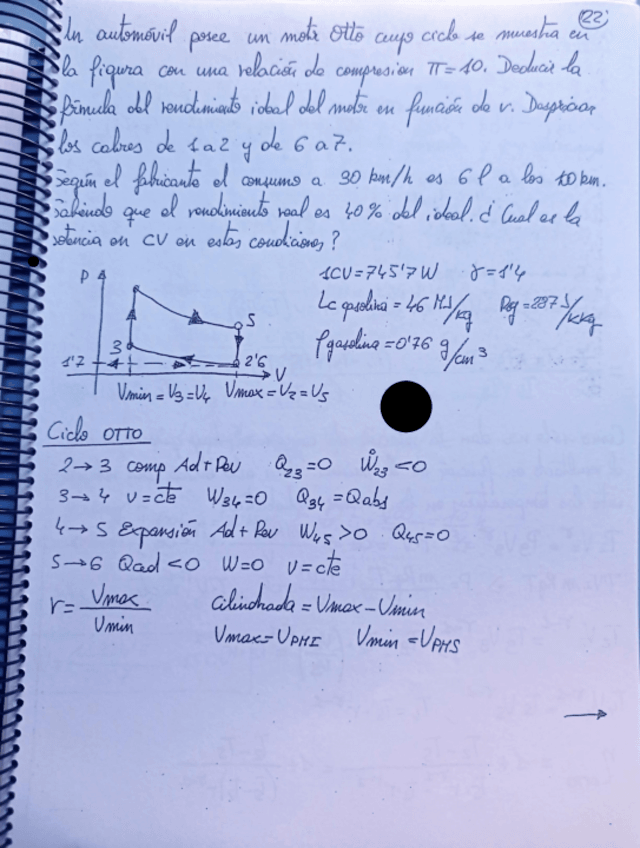 22
Un automóvil posee un motor Otto cuyo ciclo se muestra en
la figura con una relación de compresion π=10. Deducir la
fórmula del rendimiento ideal del motor en función de r. Despreciar
los calores de 1 a 2 y de 6 a 7.
Según el fabricante el consumo a 30 km/h es 6 l a los 10 km.
Sabiendo que el rendimiento real es 40% del ideal. ¿Cual es la
potencia en CV en estas condiciones?
1CV=745'7W γ=1'4
Lc gasolina = 46 MJ/kg Rg=287 J/kKg
ρgasolina=0'76 g/cm³
P
5
3
1'7
2'6
V
Vmin=V3=V4 Vmax=V2=V5
Ciclo OTTO
2→3 comp Ad+Rev Q23=0 Ẇ23<0
3→4 v=cte W34=0 Q34=Qabs
4→5 Expansión Ad+Rev W45>0 Q45=0
5→6 Qad<0 W=0 v=cte
r= Vmax/Vmin Cilindrada=Vmax-Vmin
Vmax=VPMI Vmin=VPMS
→